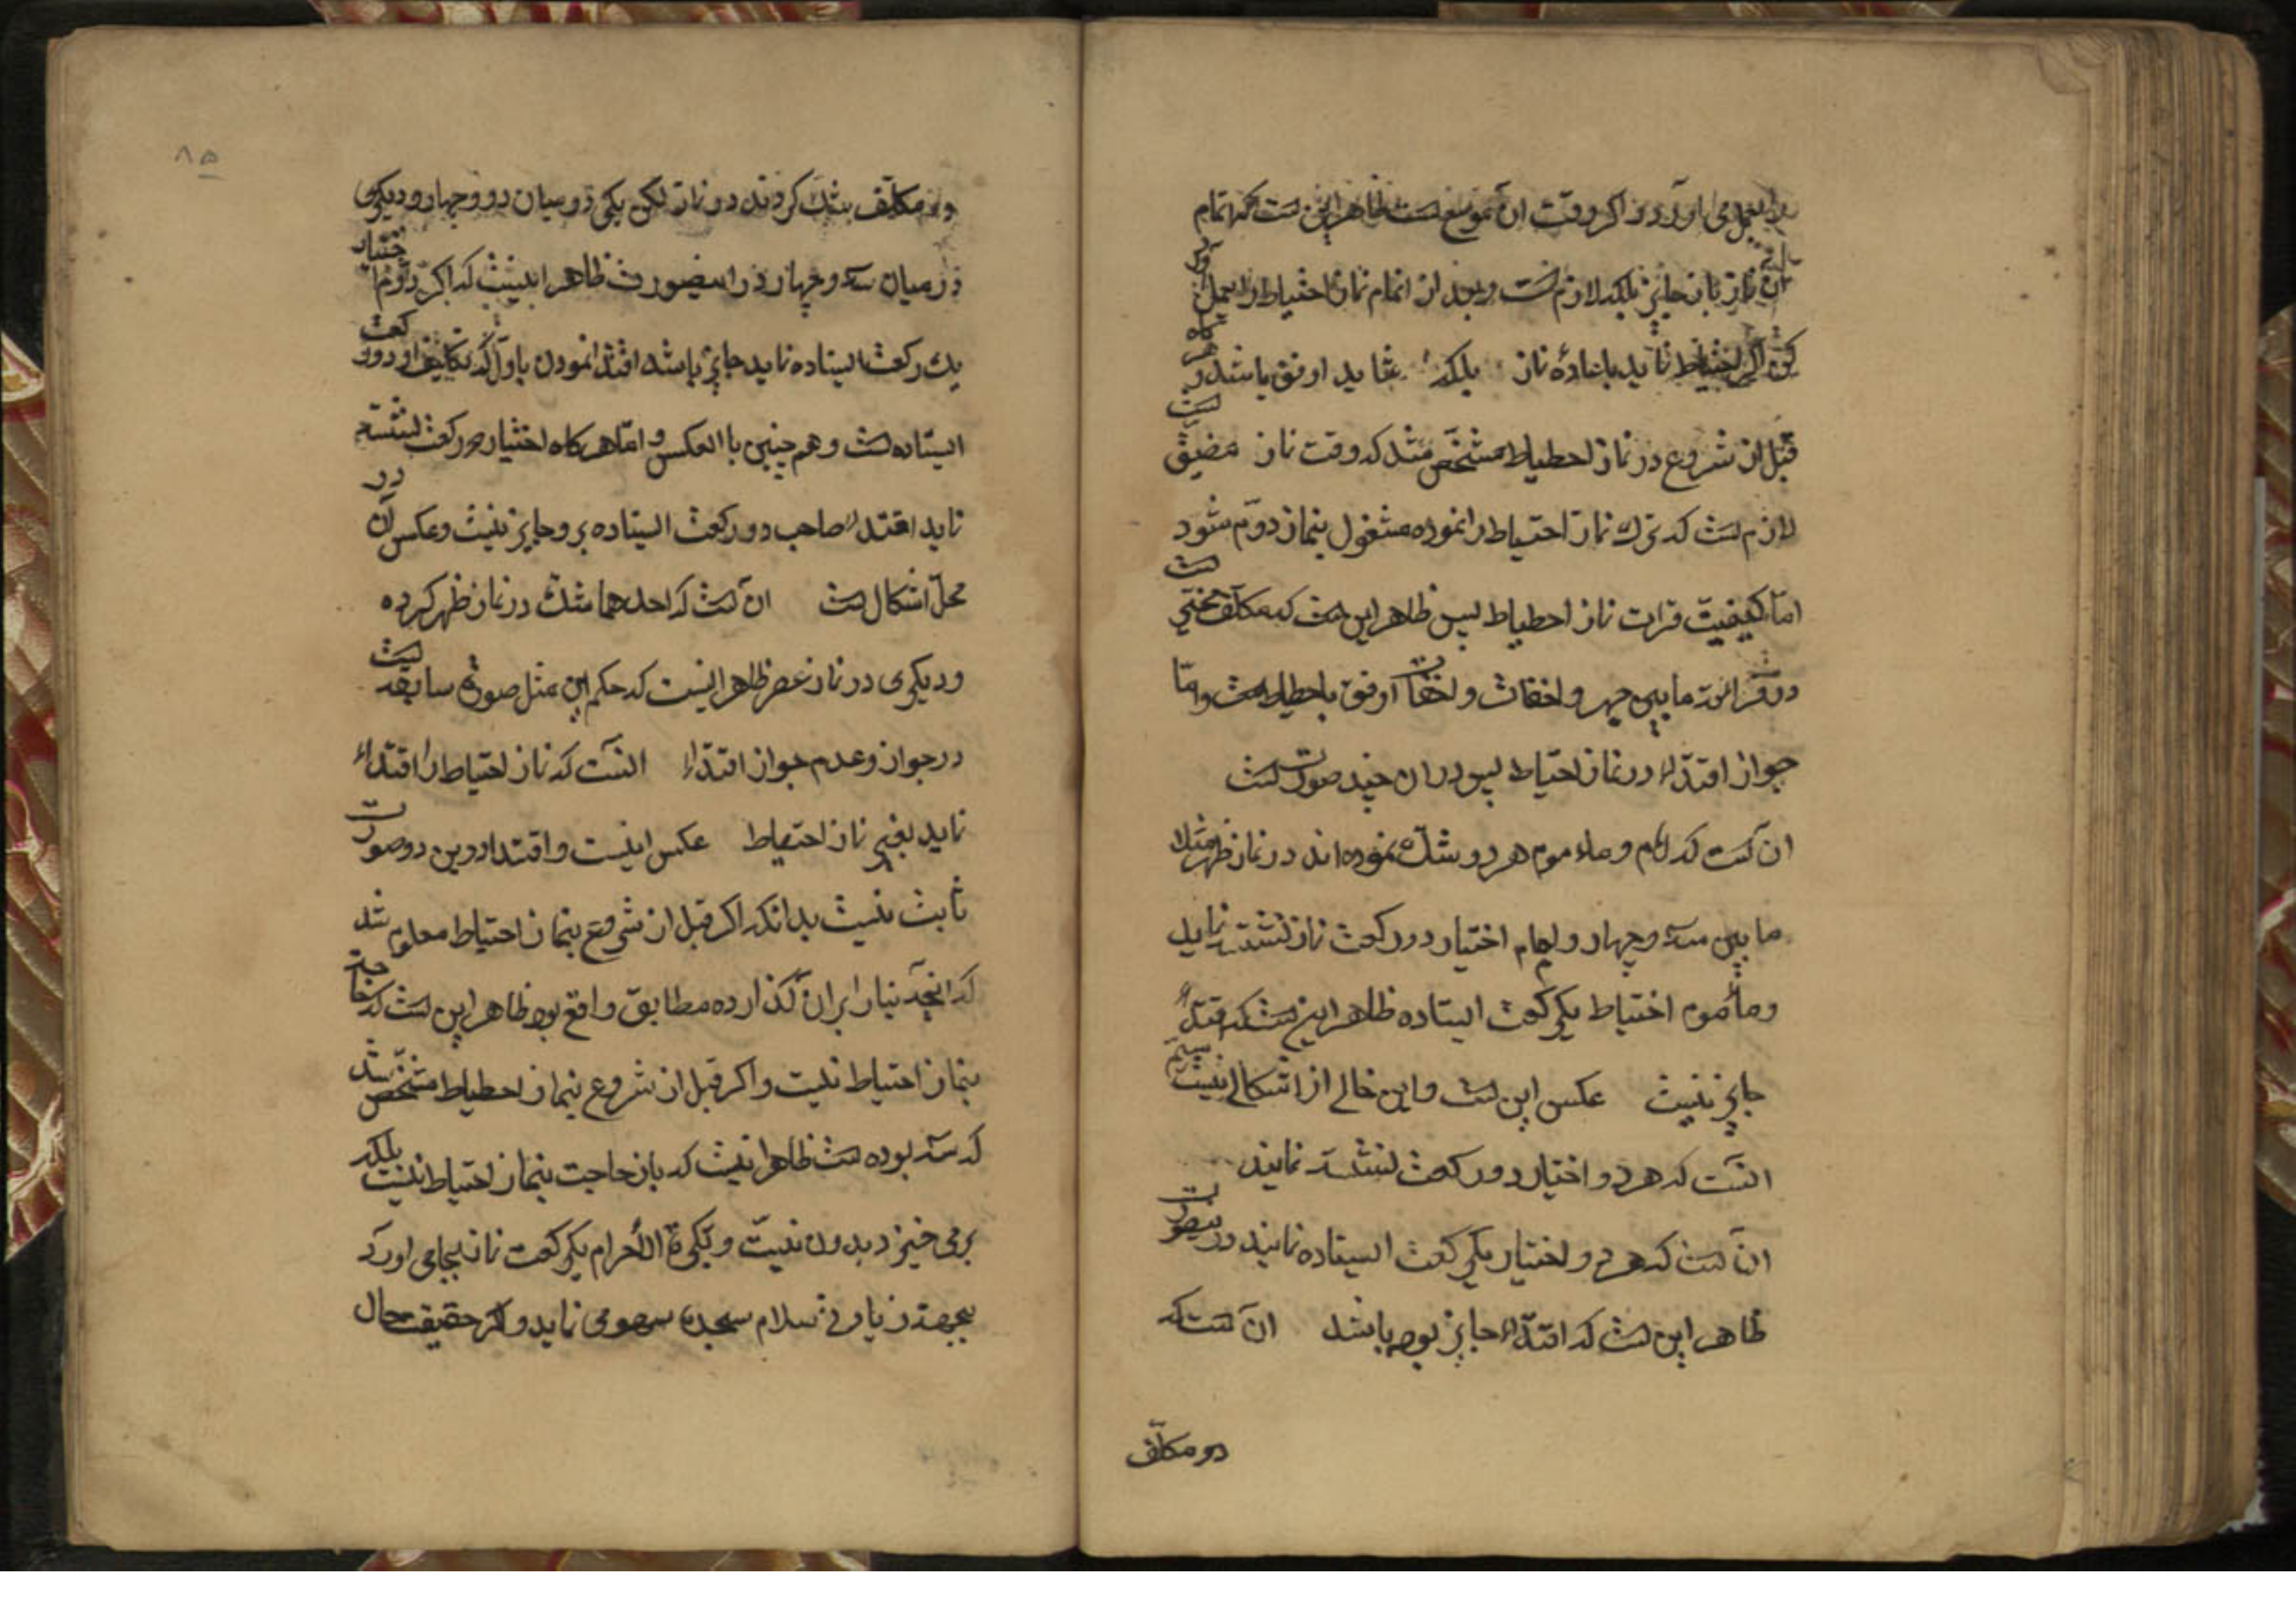 را بعمل می اورد و اکر وقت ان موسع است ظاهر این است که اتمام
ان نماز بان جایز بلکه لازم است و بعد از اتمام نماز احتیاط را بعمل اورد
لکن اکر احتیاط نماید باعادهٔ نماز بلکه شاید اوفق باشد و هر کاه
قبل از شروع در نماز احطیاط مشخص شد که وقت نماز مضیق است
لازم است که ترک نماز احتیاط را نموده مشغول بنماز دوّم شود
امّا کیفیّت قرات نماز احطیاط پس ظاهر این است که مکلّف مختی است
در قرائت ما بین جهر و اخفات و اخفات اوفق باحطیاط است و امّا
جواز اقتداء در نماز احتیاط پس در ان چند صورت است
ان است که امام و ماءموم هر دو شک نموده اند در نماز ظهر مثلا
ما بین سه و چهار و امام اختیار دو رکعت نماز نشسته نماید
و مأموم اختیاط یکرکعت ایستاده ظاهر این است که اقتداء
جایز نیست عکس این است و این خالی از اشکالی نیست سیّم
انست که هر دو اختیار دو رکعت نشسته نمایند
ان است که هر دو اختیار یکرکعت ایستاده نمایند در ینصورت
ظاهر این است که اقتداء جایز بوده باشد ان است که
دو مکلّف
۸۵
دو مکلّف شک کردند در نماز لکن یکی در میان دو و چهار و دیکری
در میان سه و چهار در اینصورت ظاهرا اینست که اکر دوّم اختیار
یک رکعت ایستاده نماید جایز باشد اقتدا نمودن باوّل که تکلیف او دو رکعت
ایستاده است و هم چنین با العکس و امّا هر کاه اختیار دو رکعت نشسته
نماید اقتداء صاحب دو رکعت ایستاده برو جایز نیست و عکس آن در
محلّ اشکال است ان است که احدهما شک در نماز ظهر کرده
و دیکری در نماز عصر ظاهر اینست که حکم این مثل صورة سابقه است
در جواز و عدم جواز اقتداء انست که نماز احتیاط را اقتداء
نماید بغیر نماز احتیاط عکس اینست و اقتدا درین دو صورت
ثابت نیست بدانکه اکر قبل از شروع بنماز احتیاط معلوم شد
که انچه بنا را بر ان کذارده مطابق واقع بوده ظاهر این است که حاجت
بنماز احتیاط نیست و اکر قبل از شروع بنماز احطیاط مشخّص شد
که سه بوده است ظاهرا نیست که بان حاجت بنماز احتیاط نیست بلکه
برمی خیزد بدون نیّت و تکبیرة الأحرام یکرکعت نماز بجا می اورد
بجهة زیادتی سلام سجدهٔ سهو می نماید و اکر حقیقت حال